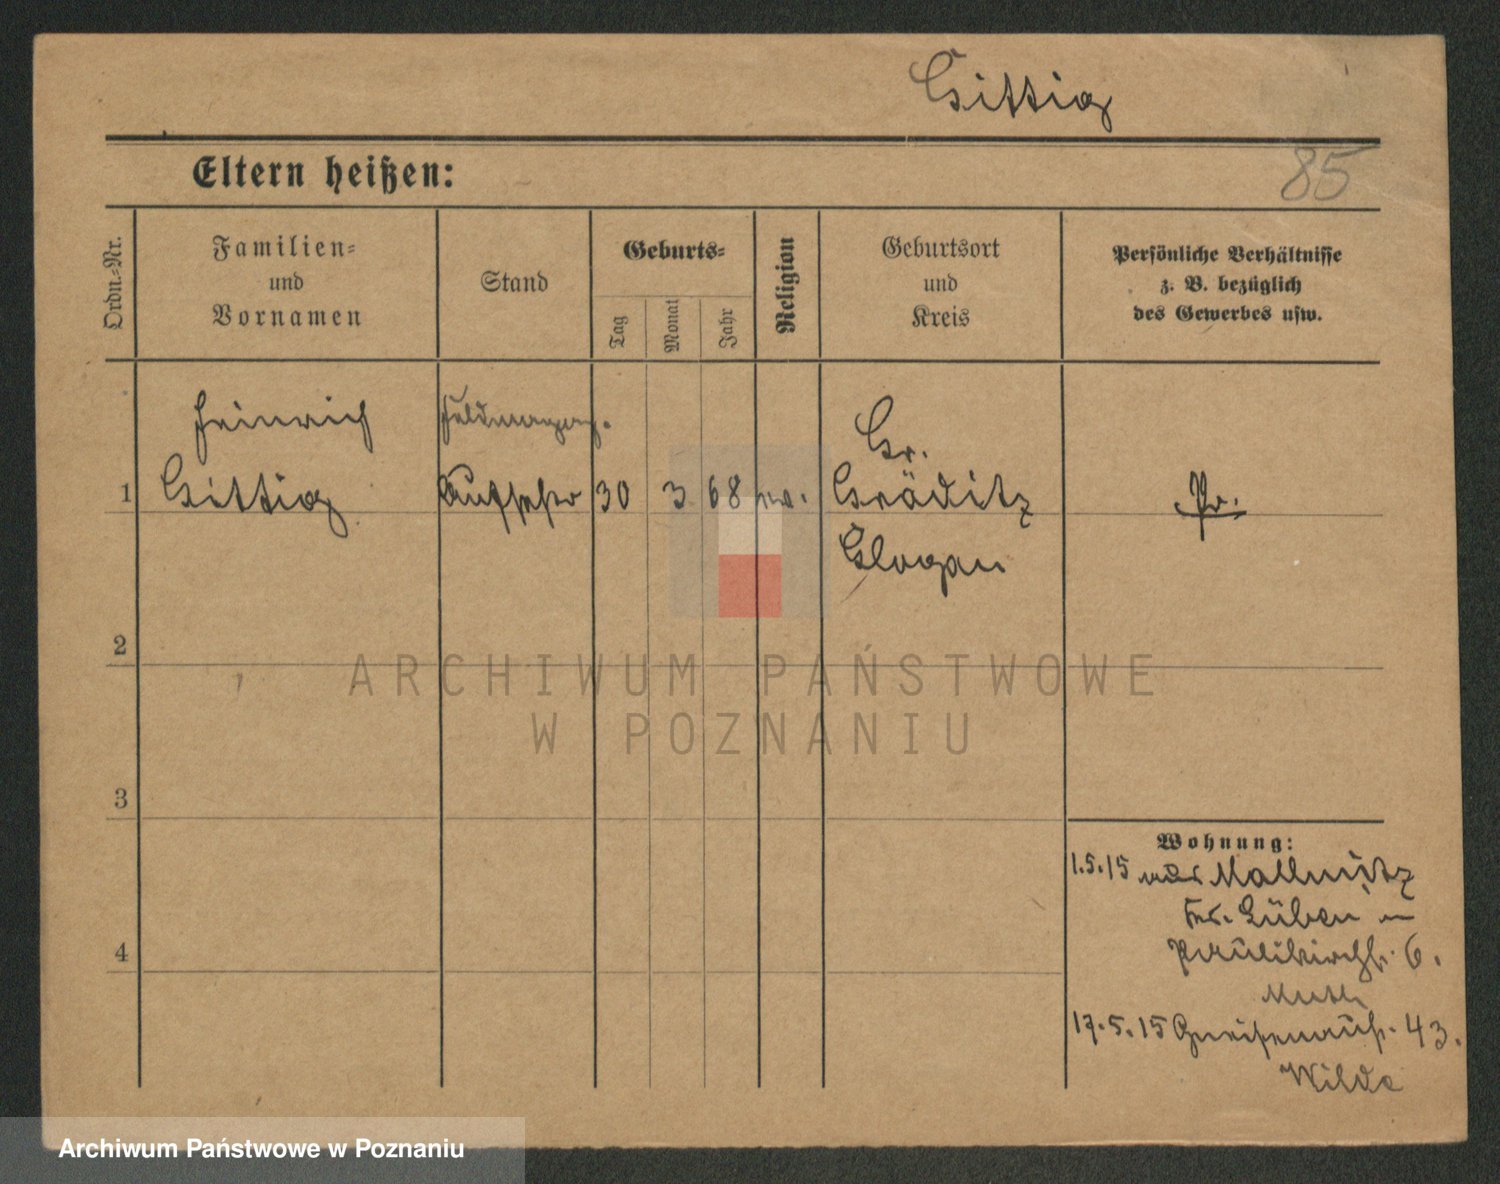 Gittig
85
Eltern heißen:
Ordn.-Nr.
Familien-
und
Vornamen
Stand
Geburts-
Tag
Monat
Jahr
Religion
Geburtsort
und
Kreis
Persönliche Verhältnisse
z. B. bezüglich
des Gewerbes usw.
Heinrich
Feldmagaz.
Gr.
1
Gittig
Aufseher
30
3
68
ev.
Gräditz
Pr.
Glogau
2
ARCHIWUM PAŃSTWOWE
W POZNANIU
3
Wohnung:
1.5.15 aus Mallmitz
Kr. Lüben
Paulikirchstr. 6.
4
Muth
17.5.15 Gneisenaustr. 43.
Wilda
Archiwum Państwowe w Poznaniu